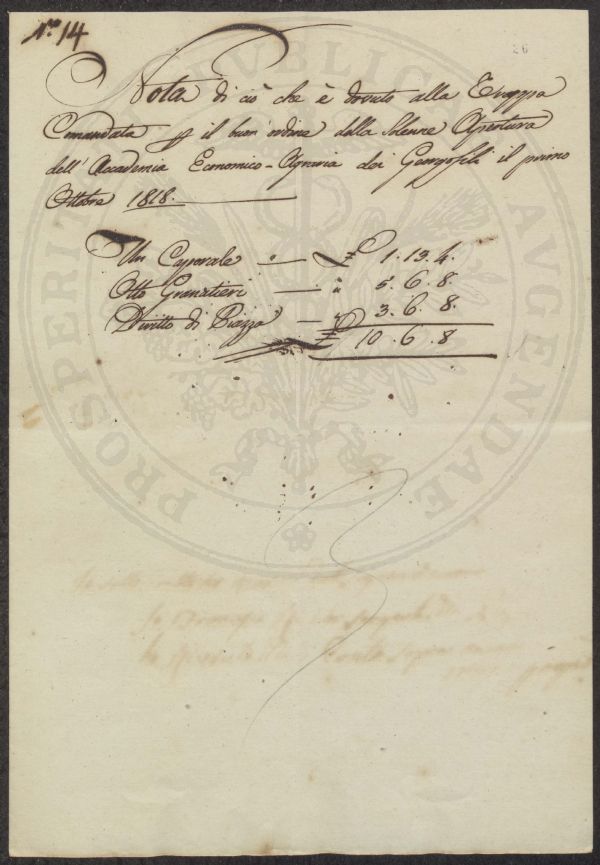 N.º 14
26
Nota di ciò che è dovuto alla Truppa
Comandata p il buon'ordine della Solenne Apertura
dell'Accademia Economico-Agraria dei Georgofili il primo
Ottobre 1818.
Un Caporale " — £ 1. 13. 4.
Otto Granatieri — " 5. 6. 8.
Diritto di Piazza — " 3. 6. 8.
£ 10. 6. 8
PROSPERITATI PUBLICAE AUGENDAE